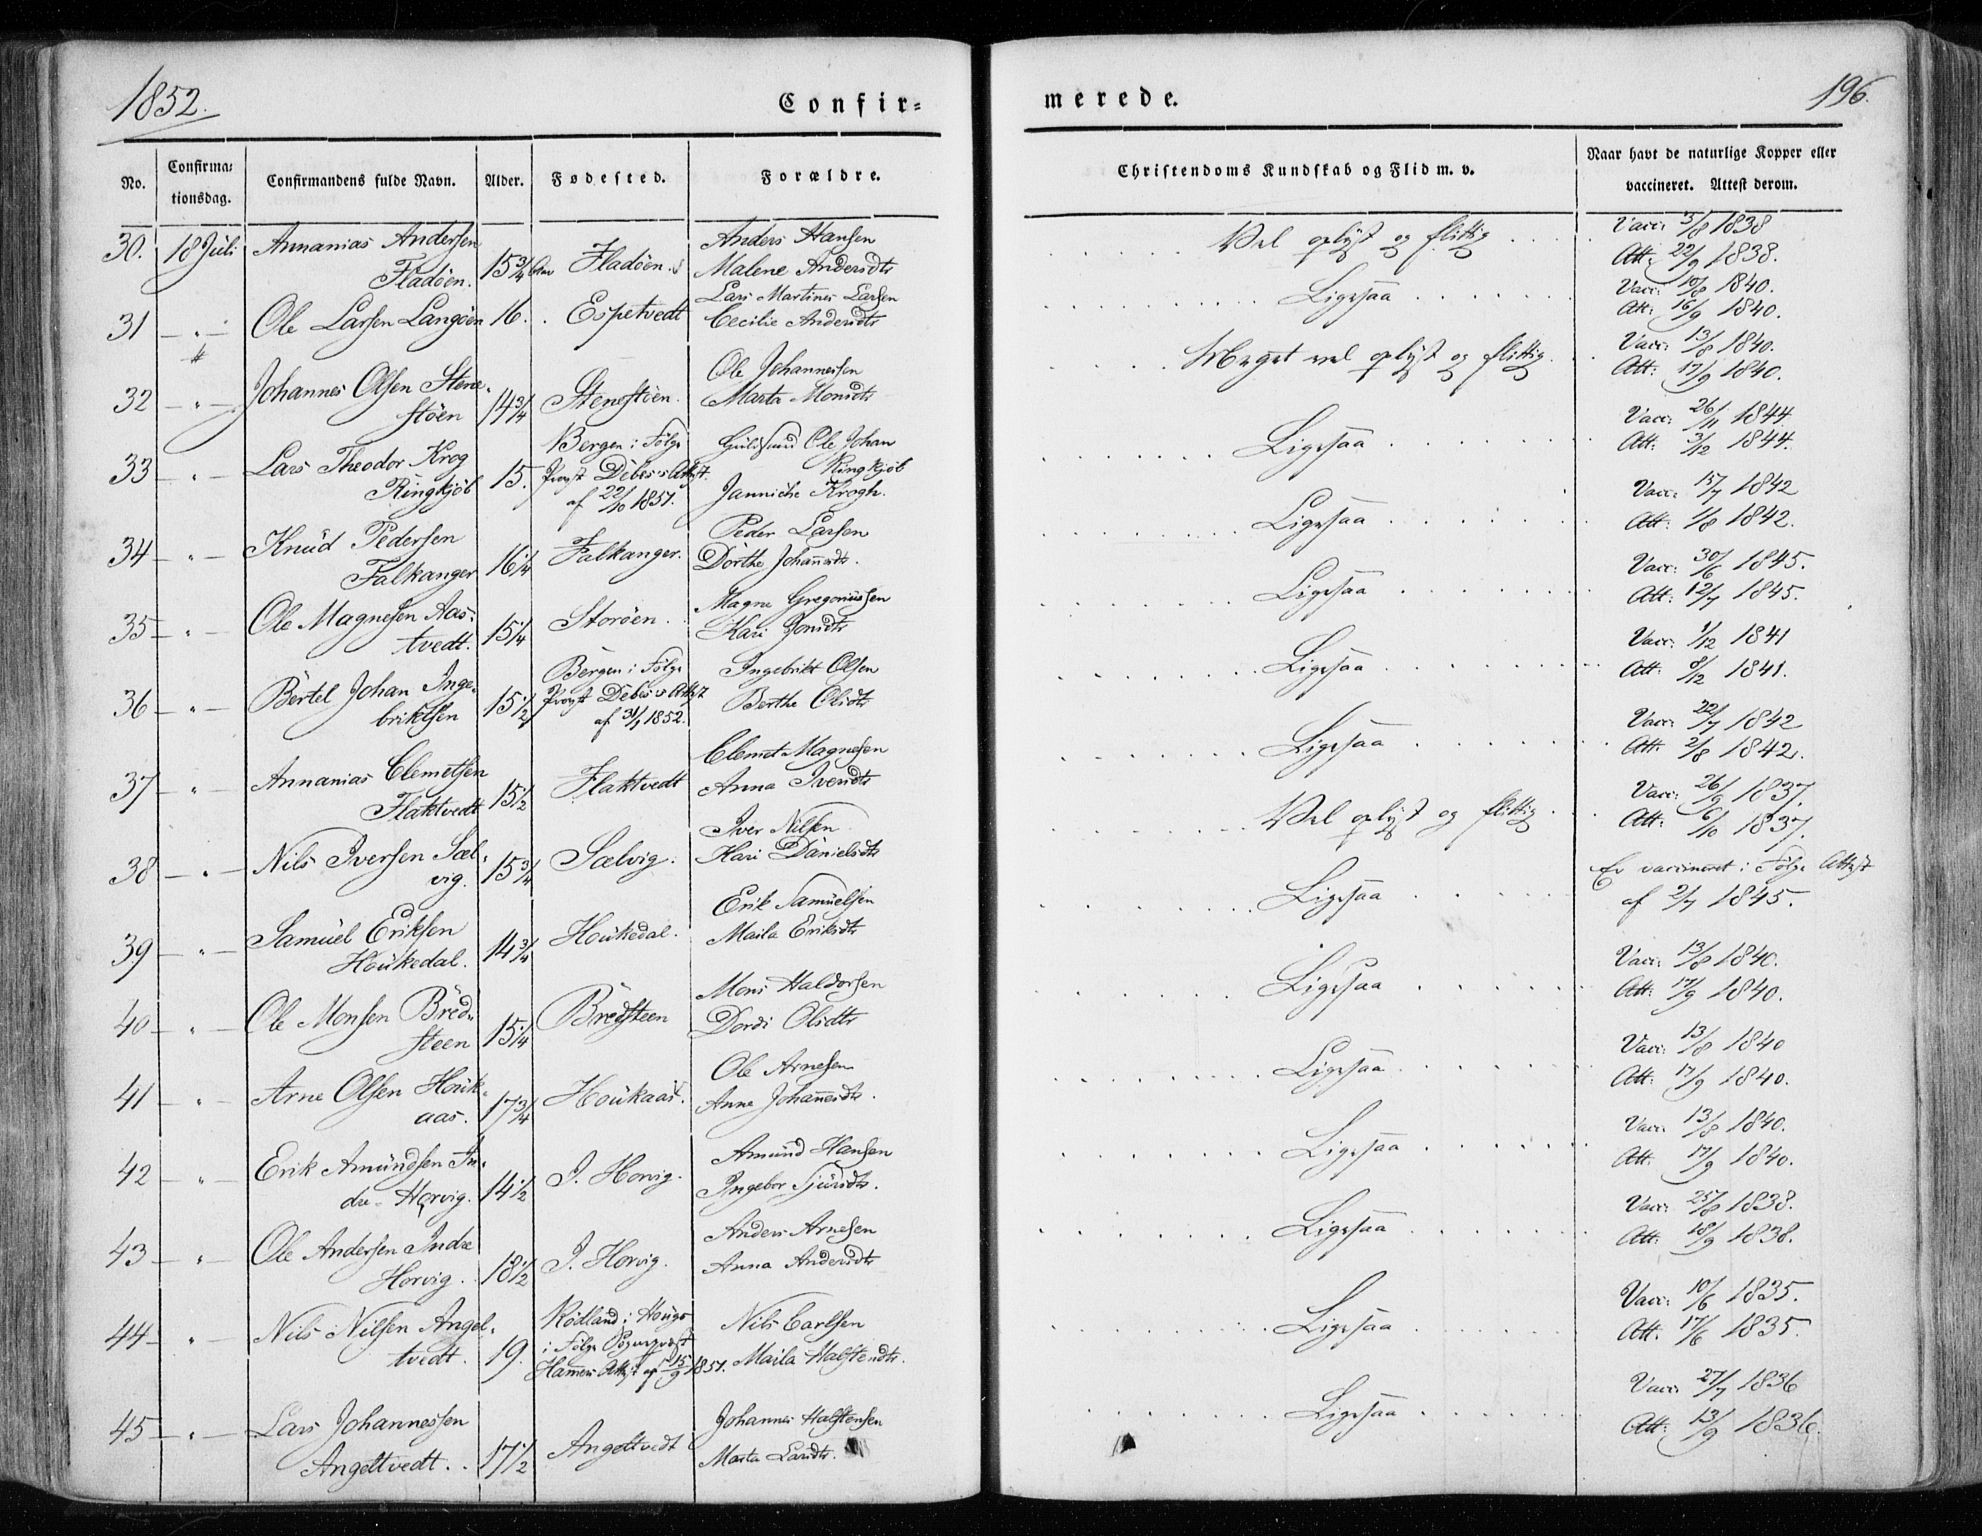 1852.
Confir=
merede.
196.
No.
Confirma=
tionsdag.
Confirmandens fulde Navn.
Alder.
Fødested.
Forældre.
Christendoms Kundskab og Flid m. v.
Naar havt de naturlige Kopper eller
vaccineret. Attest derom.
30. 18 Juli Annanias Andersen
Fladöen. 15 3/4 Fladöen.
Anders Hansen
Malene Andersdtr
Vel oplyst og flittig
Vacc: 5/8 1838
Att: 22/9 1838.
31 — " — Ole Larsen Langöen 16. Espetvedt
Lars Martines Larsen
Cecilie Andersdtr
Ligesaa
Vacc: 10/8 1840.
Att: 16/9 1840.
32 — " — Johannes Olsen Stene-
stöen 14 3/4 Stenestöen.
Ole Johannessen
Marta Monsdtr
Meget vel oplyst og flittig.
Vacc: 13/8 1840.
Att: 17/9 1840.
33 — " — Lars Theodor Krog
Ringkjöb 15.
Bergen i Følge
Provst Debes's Attest
af 22/10 1851.
Guldsmd Ole Johan
Ringkjöb
Janniche Krogh.
Ligesaa
Vacc: 26/11 1844.
Att: 3/12 1844.
34 — " — Knud Pedersen
Falkanger 16 1/4 Falkanger.
Peder Larsen
Dorthe Johansdtr.
Ligesaa
Vacc: 15/7 1842
Att: 1/8 1842.
35 — " — Ole Magnesen Aas-
tvedt. 15 1/4 Storöen.
Magne Gregoriussen
Kari Jonsdtr
Ligesaa
Vacc: 30/6 1845.
Att: 12/7 1845.
36 — " — Bertel Johan Inge-
briktsen 15 1/2
Bergen i Følge
Provst Debes's Attest
af 31/1 1852.
Ingebrikt Olsen
Berthe Olsdtr
Ligesaa
Vacc: 1/12 1841
Att: 8/12 1841.
37 — " — Annanias Clemetsen
Flaktvedt 15 1/2 Flaktvedt
Clemet Magnesen
Anna Iversdtr
Ligesaa
Vacc: 22/7 1842
Att: 2/8 1842.
38 — " — Nils Iversen Sæl-
vig. 15 3/4 Sælvig.
Iver Nilsen
Kari Danielsdtr
Vel oplyst og flittig
Vacc: 26/9 1837.
Att: 6/10 1837.
39 — " — Samüel Eriksen
Houkedal. 14 3/4 Houkedal.
Erik Samüelsen
Maila Eriksdtr
Ligesaa
Er vaccineret i Følge Attest
af 2/7 1845.
40 — " — Ole Monsen Bred-
steen 15 1/4 Bredsteen
Mons Haldorsen
Dordi Olsdtr
Ligesaa
Vacc: 13/8 1840.
Att: 17/9 1840.
41 — " — Arne Olsen Houk-
aas. 17 3/4 Houkaas.
Ole Arnesen
Anne Johannesdtr.
Ligesaa
Vacc: 13/8 1840
Att: 17/9 1840.
42 — " — Erik Amundsen In-
dre-Horvig. 14 1/2 I. Horvig.
Amund Hansen
Ingebor Sjursdtr.
Ligesaa
Vacc: 13/8 1840.
Att: 17/9 1840.
43 — " — Ole Andersen Indre
Horvig. 18 1/2 I. Horvig.
Anders Arnesen
Anna Andersdtr
Ligesaa
Vacc: 25/8 1838.
Att: 18/9 1838.
44 — " — Nils Nilsen Angel-
tvedt. 19.
Rödland i Hougs
i Følge
Hammers Attest af 15/9 1851.
Nils Carlsen
Maila Halstendtr.
Ligesaa
Vacc: 10/6 1835.
Att: 17/6 1835.
45 — " — Lars Johannessen
Angeltvedt. 17 1/2 Angeltvedt
Johannes Halstensen
Marta Larsdtr.
Ligesaa
Vacc: 27/7 1836
Att: 13/9 1836.